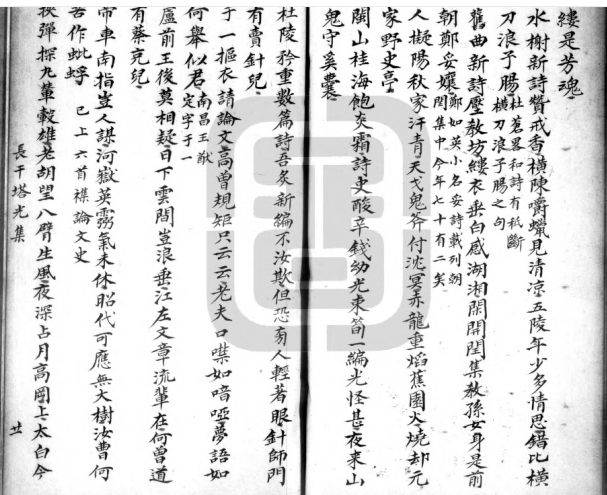 縷是芳魂
水榭新詩贊戒香橫陳嚼蠟見清凉五陵年少多情思錯比橫
刀浪子腸
杜蒼畧和詩有秖斷
橫刀浪子腸之句
舊曲新詩壓教坊縷衣垂白感湖湘閒開閏集教孫女身是前
朝鄭妥孃
鄭如英小名妥詩載列朝
閏集中今年七十有二矣
人擬陽秋家汗青天戈鬼斧付沈冥赤龍重焰蕉園火燒却元
家野史亭
閩山桂海飽炎霜詩史酸辛錢幼光束筍一編光怪甚夜來山
鬼守奚囊
杜陵矜重數篇詩吾炙新編不汝欺但恐旁人輕著眼針師門
有賣針兒
于一摳衣請論文高曾規矩只云云老夫口噤如喑啞夢語如
何舉似君
南昌王猷
定字于一
盧前王後莫相疑日下雲間豈浪垂江左文章流輩在何曾道
有蔡克兒
帝車南指豈人謀河嶽英霧氣未休昭代可應無大樹汝曹何
苦作蚍蜉 已上六首襍論文史
挾彈探丸輩較雄老胡望八臂生風夜深占月高岡上太白今
長干塔光集 廿